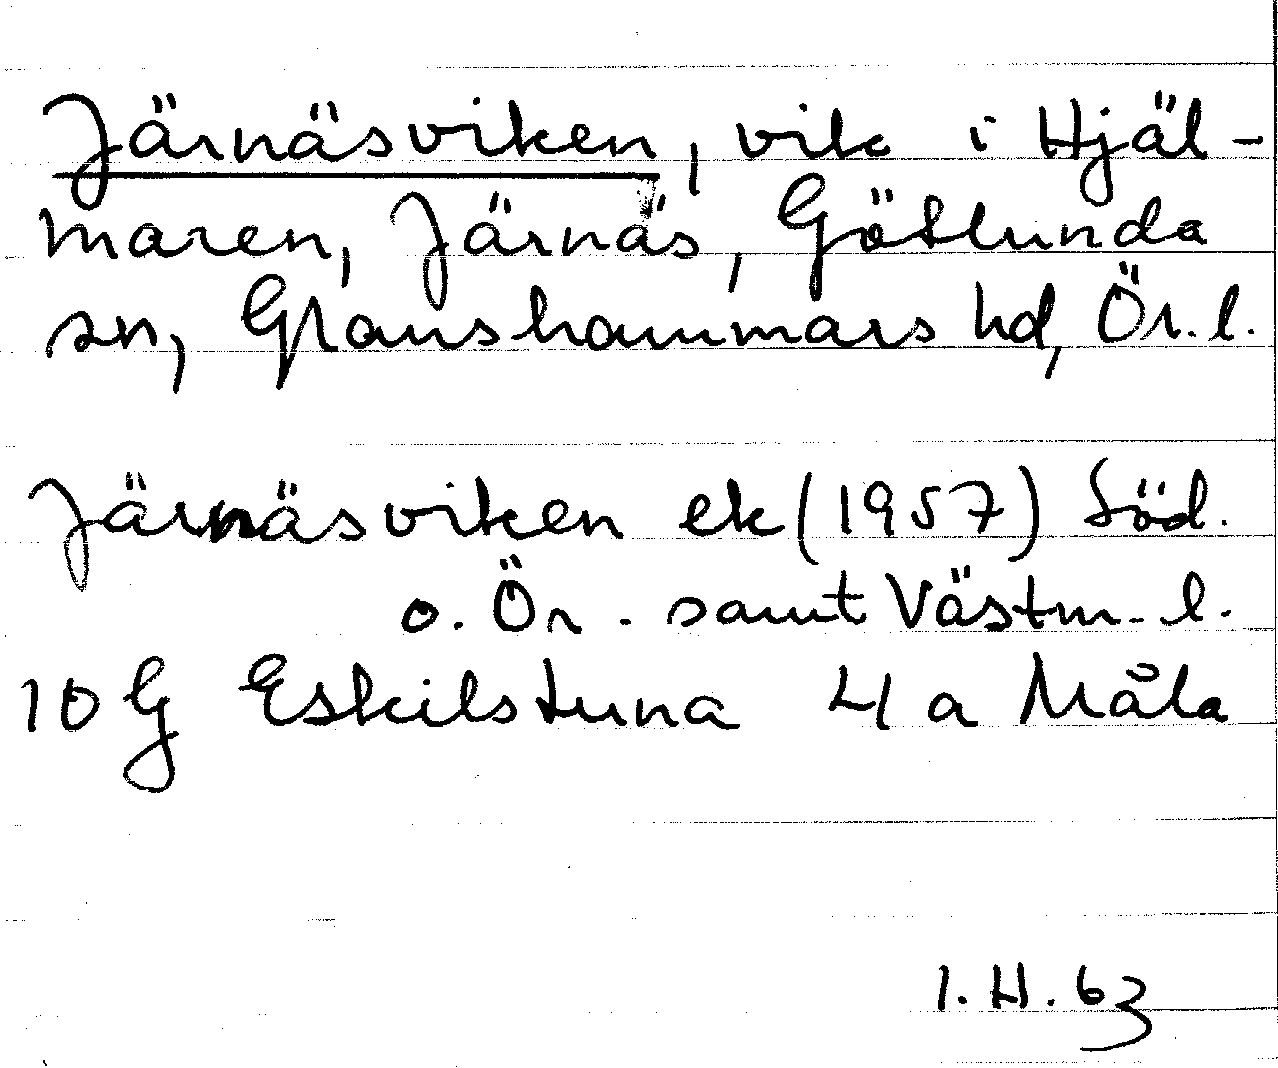 Järnäsviken, vik i Hjäl-
maren, Järnäs, Götlunda
sn, Glanshammars hd, Ör. l.
Järnäsviken ek (1957) Söd.
o. Ör. samt Västm. l.
10 G Eskilstuna 4 a Måla
I. H. 63